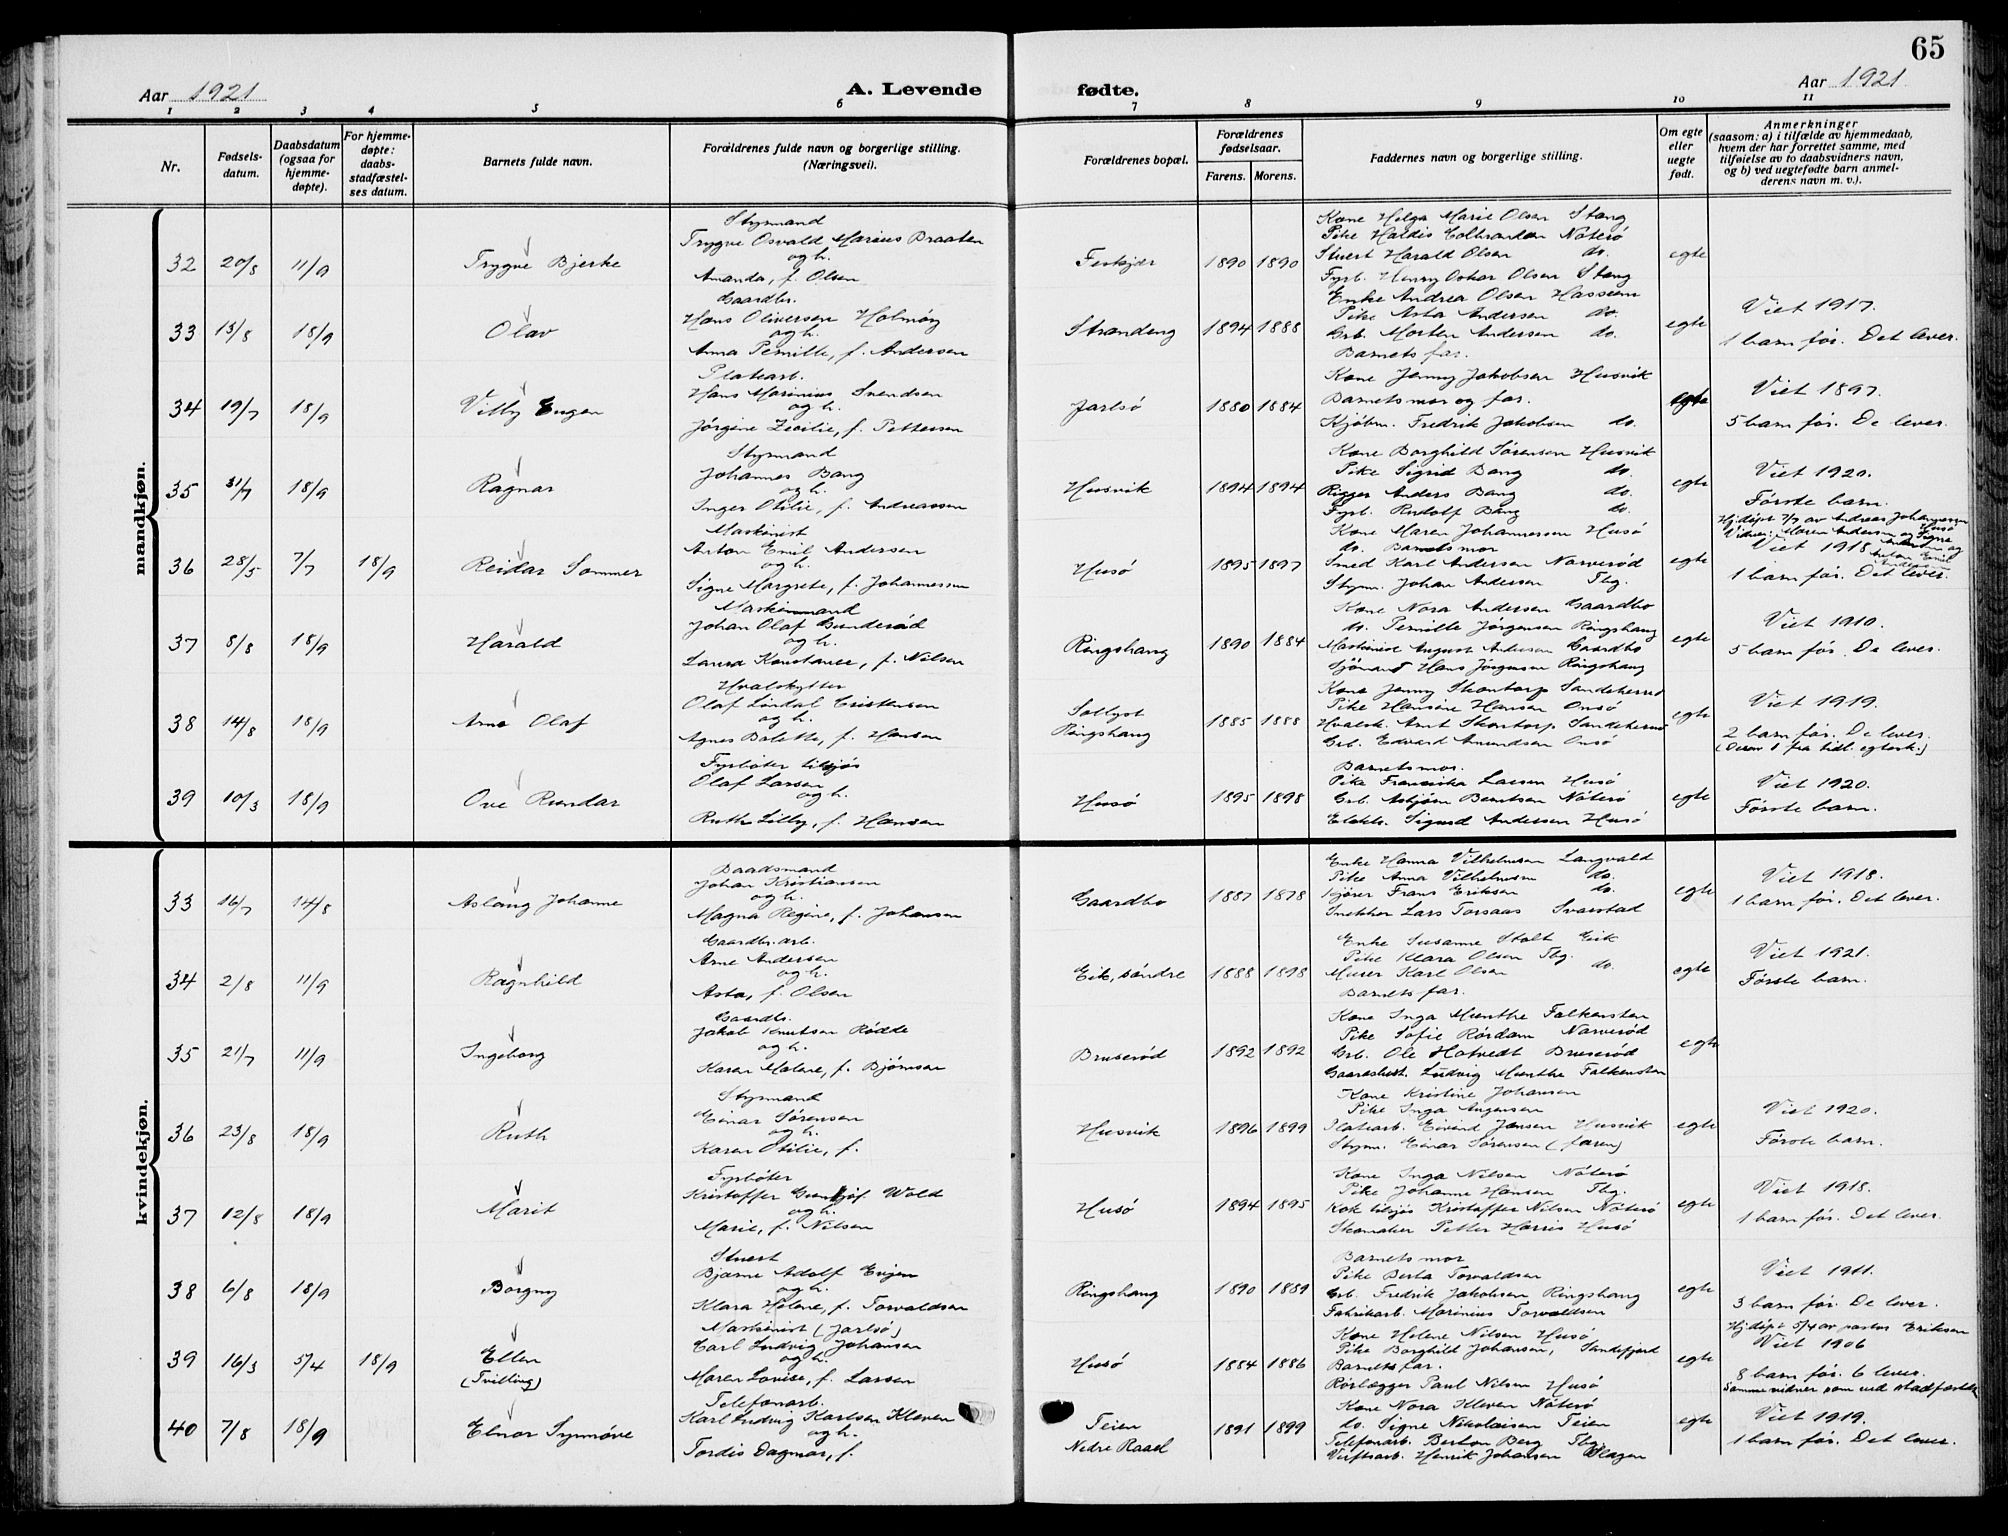 65
Aar 1921 A. Levende fødte. Aar 1921.
1 2 3 4 5 6 7 8 9 10 11
Nr. Fødselsdatum. Daabsdatum (ogsaa for hjemmedøpte). For hjemmedøpte: daabsstadfæstelses datum. Barnets fulde navn. Forældrenes fulde navn og borgerlige stilling. (Næringsvei). Forældrenes bopæl. Forældrenes fødselsaar. Farens. Morens. Faddernes navn og borgerlige stilling. Om egte eller uegte født. Anmerkninger (saasom: a) i tilfælde av hjemmedaab, hvem der har forrettet samme, med tilføielse av to daabsvidners navn, og b) ved uegtefødte barn anmelderens navn m. v.).
mandkjøn.
Styrmand Kone Helga Marie Olsen Stang
Trygve Osvald Marius Braaten Pike Haldis Nøterø
32 20/8 11/9 Trygve Bjerke og h. 1890 1890 Stuert Harald Olsen do. egte
Amanda, f. Olsen Fyrb. Henry Oskar Olsen Stang
Gaardbr. Enke Andrea Olsen
Hans Oliversen Pike Asta Andersen do. Viet 1917.
33 13/8 18/9 Olav og h. 1894 1888 Grb. Morten Andersen do. egte
Anna Pernille, f. Andersen Barnets far. 1 barn før. Det lever.
Platearb. Kone Jenny Jakobsen Husvik
Hans Marinius Svendsen Barnets mor og far. Viet 1897.
34 19/7 18/9 Villy Eugen og h. Jarlsø 1880 1884 egte
Jørgine Zecilie, f. Pettersen Kjøbm. Fredrik Jakobsen do. 5 barn før. De lever.
Styrmand Kone Borghild Sørensen Husvik
Johannes Bang Pike Sigrid Bang do. Viet 1920.
35 31/7 18/9 Ragnar og h. Husvik 1894 1894 Rigger Anders Bang do. egte
Inger Otilie, f. Andreassen Fyrb. Rudolf Bang do. Første barn.
Maskinist Kone Maren Johannessen Husø Hj.døpt 7/7 av Andreas Johannessen Husø
Anton Emil Andersen do. Barnets mor Vidner: Maren Andersen og Signe
36 28/5 7/7 18/9 Reidar Sommer og h. Husø 1895 1897 Smed Karl Andersen Narverød egte Viet 1918
Signe Margrete, f. Johannessen Styrm. Johan Andersen Tbg. 1 barn før. Det lever.
Maskinmand Kone Nora Andersen Gaardbo
Johan Olaf Gunderød do. Pernille Jørgensen Ringshaug Viet 1910.
37 8/8 18/9 Harald og h. Ringshaug 1890 1884 Maskinist August Andersen Gaardbo egte
Laura Konstanse, f. Nilsen Sjømand Hans Jørgensen Ringshaug 5 barn før. De lever.
Hvalskytter Kone Jenny Skontorp Sandeherred
Olaf Lindal Cristensen Pike Hansine Hansen Onsø Viet 1919.
38 14/8 18/9 Arne Olaf og h. Solbyst Ringshaug 1885 1888 Hvalsk. Arnt Skontorp Sandeherred egte
Agnes Bolette, f. Hansen Grb. Edvard Amundsen Onsø 2 barn før. De lever.
(Derav 1 fra tidl. egtesk.)
Fyrbøter tilsjøs Barnets mor.
Olaf Larsen Pike Franciska Larsen Husø Viet 1920.
39 10/3 18/9 Ove Rundar og h. Husø 1895 1898 Grb. Asbjørn Berntsen Nøterø egte
Ruth Lilly, f. Hansen Elektr. Sigurd Andersen Husø Første barn.
kvindekjøn.
Baadsmand Enke Hanna Vilhelmsen Langvald
Johan Kristiansen Pike Anna Vilhelmsen do. Viet 1918.
33 16/7 14/8 Aslaug Johanne og h. Gaardbo 1887 1878 Kjører Frans Eriksen do. egte
Magna Regine, f. Johansen Snekker Lars Torsaas Svarstad 1 barn før. Det lever.
Gaardbr.arb. Enke Susanne Stolt Eik
Arne Andersen Pike Klara Olsen Tbg. Viet 1921.
34 2/8 11/9 Ragnhild og h. Eik, søndre 1888 1898 Murer Karl Olsen do. egte
Asta, f. Olsen Barnets far. Første barn.
Gaardbr. Kone Inga Munthe Falkensten
Jakob Knutsen Rødde Pike Sofie Rørdam Narverød
35 21/7 11/9 Ingeborg og h. Bruserød 1892 1892 Grb. Ole Hotvedt Bruserød egte
Karen Malene, f. Bjørnsen Gaardbest. Ludvig Munthe Falkensten
Styrmand Kone Kristine Johansen
Einar Sørensen Pike Inga Viet 1920.
36 23/8 18/9 Ruth og h. Husvik 1896 1899 Platearb. Eivind Jensen Husvik egte
Karen Otilie, f. Styrm. Einar Sørensen (faren) Første barn.
Fyrbøter Kone Inga Nilsen Nøterø
Kristoffer Wold Pike Johanne Hansen Tbg. Viet 1918.
37 12/8 18/9 Marit og h. Husø 1894 1895 Kok tilsjøs Kristoffer Nilsen Nøterø egte
Marie, f. Nilsen Skomaker Petter Harris Husø 1 barn før. Det lever.
Stuert Barnets mor
Bjarne Adolf Evjen Pike Berta Torvaldsen Viet 1911.
38 6/8 18/9 Borgny og h. Ringshaug 1890 1889 Grb. Fredrik Jakobsen Ringshaug egte
Klara Helene, f. Torvaldsen Fabrikarb. Marinius Torvaldsen 3 barn før. De lever.
Maskinist (Jarlsø) Kone Helene Nilsen Husø Hj.døpt 5/4 av pastor Eriksen
Carl Ludvig Johansen Pike Borghild Johansen, Sandefjord Viet 1906
39 16/3 5/4 18/9 Ellen (Tvilling) og h. Husø 1884 1886 Barnets far. egte
Maren Lovise, f. Larsen Rørlægger Paul Nilsen Husø 8 barn før. 6 lever.
Samme vidner som ved stadfæstelse
Telefonarb. Kone Nora Kleven Nøterø
Karl Ludvig Karlsen Kleven Teien do. Signe Nikolaisen Teien Viet 1919.
40 7/8 18/9 Elnor Synnøve og h. Nedre Raael 1891 1899 Telefonarb. Berton Berg Tbg. egte
Tordis Dagmar, f. Verftsarb. Henrik Johansen Slagen 1 barn før. Det lever.